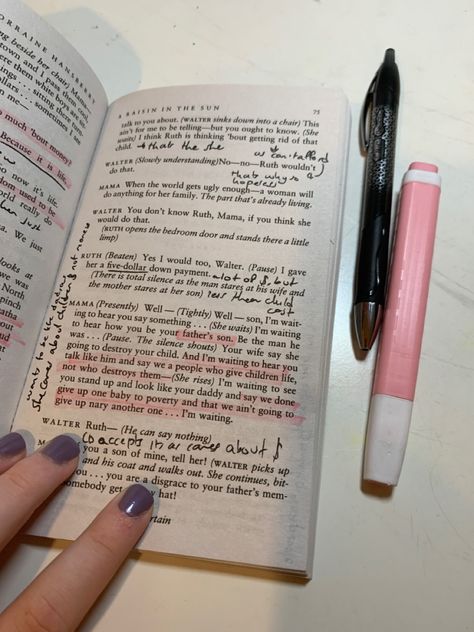 LORRAINE HANSBERRY
ng beside her chair; Mama)
town and I can
here them white boys are
ings . . . sometimes I see
dollars—sometimes
me—
so much 'bout money?
Because it is life,
now it's life.
dom used to be
world really do
We just
looks at
We was
North
Pinch
athe
A RAISIN IN THE SUN
75
talk to you about. (WALTER sinks down into a chair) This
ain't for me to be telling—but you ought to know. (She
waits) I think Ruth is thinking 'bout getting rid of that
child. → thats the she
as can't afford
WALTER (Slowly understanding) No—no—Ruth wouldn't
do that.
thats why so
hopeless
MAMA When the world gets ugly enough—a woman will
do anything for her family. The part that's already living.
WALTER You don't know Ruth, Mama, if you think she
would do that.
(RUTH opens the bedroom door and stands there a little
limp)
RUTH (Beaten) Yes I would too, Walter. (Pause) I gave
her a five-dollar down payment. a lot of $, but
(There is total silence as the man stares at his wife and
the mother stares at her son) less then child
cost
MAMA (Presently) Well— (Tightly) Well— son, I'm wait-
ing to hear you say something . . . (She waits) I'm waiting
to hear how you be your father's son. Be the man he
was . . . (Pause. The silence shouts) Your wife say she
going to destroy your child. And I'm waiting to hear you
talk like him and say we a people who give children life,
not who destroys them— (She rises) I'm waiting to see
you stand up and look like your daddy and say we done
give up one baby to poverty and that we ain't going to
give up nary another one . . . I'm waiting.
wants to
she cares about children & not money
WALTER Ruth— (He can say nothing)
accepts it as cares about $
you a son of mine, tell her! (WALTER picks up
and his coat and walks out. She continues, bit-
you . . . you are a disgrace to your father's mem-
omebody get my hat!
rtain